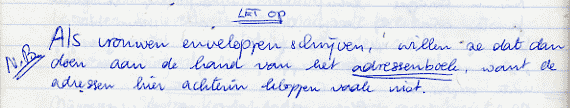 LET OP
N.B. Als vrouwen enveloppen schrijven, willen ze dat dan
doen aan de hand van het adressenboek, want de
adressen hier achterin kloppen vaak niet.